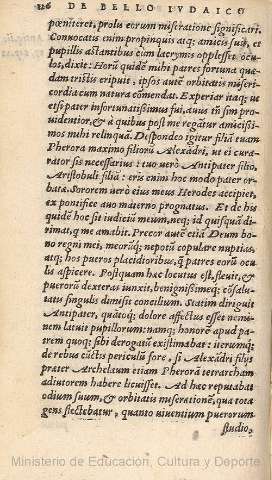 126 DE BELLO IVDAICO
pœniteret, prolis eorum miseratione significari.
Conuocatis enim propinquis atq; amicis suis, et
pupillis astantibus cùm lacrymis opplesset ocu-
los, dixit: Horū quidē mihi patres fortuna quæ-
dam tristis eripuit, ipsos autē orbitatis miseri-
cordia naturæ comēdat. Experiar itaq; ut
etsi pater infortunatissimus fui, auus tn̄ sim pro
uidentior, & à quibus post me regātur amicissi-
mos mihi relinquā. Despondeo igitur filiā tuam
Pherora maximo filiorū Alexādri, ut ei cura-
tor sis necessarius: tuo uerò Antipater filio,
Aristobuli filiā: eris enim hoc modo pater or-
batæ. Sororem uerò eius meus Herodes accipiet,
ex pontifice auo materno prognatus. Et de his
quidē hoc sit iudiciū meum, neq; id quisquā di-
rimat, q me amabit. Precor autē etiā Deum bo-
no regni mei, meorūq; nepotū copulare nuptias,
atq; hos pueros placidioribus, q̄ patres eorū ocu
lis aspicere. Postquam hæc locutus est, fleuit, &
puerorū dexteras iunxit, benignissimeq; cōsalu-
tatis singulis dimisit concilium. Statim diriguit
Antipater, quātoq; dolore affectus esset nemi-
nem latuit pupillorum: namq; honorē apud pa-
trem quoq; sibi derogatū existimabat: iterumq;
de rebus cūctis periculū fore, si Alexādri filij
præter Archelaum etiam Pherorā tetrarcham
adiutorem habere licuisset. Ad hæc reputabat
odium suum, & orbitatis miserationē, qua tota
gens flectebatur, quanto uiuentium puerorum
studio,
Ministerio de Educación, Cultura y Deporte